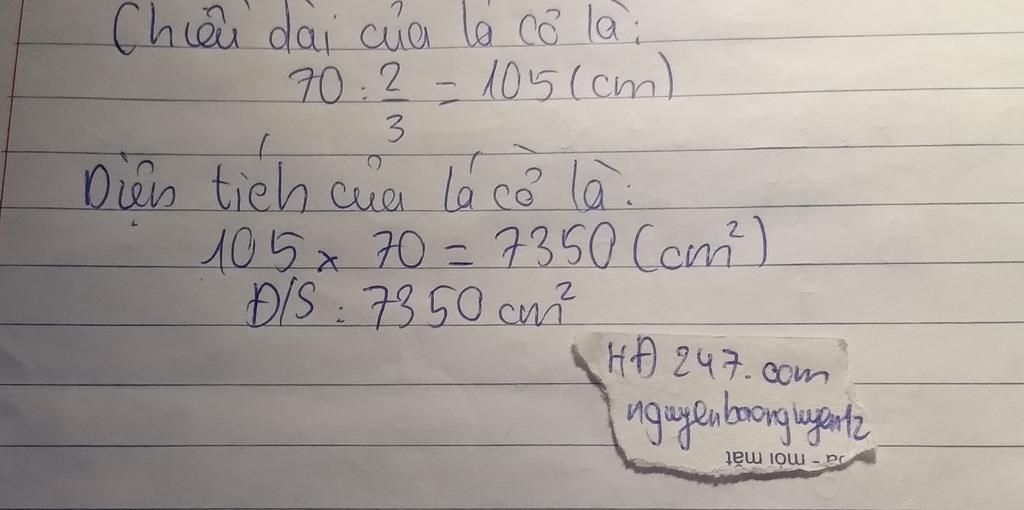 Chiều dài của lá cờ là:
70 : 2/3 = 105 (cm)
Diện tích của lá cờ là:
105 x 70 = 7350 (cm²)
Đ/S : 7350 cm²
HĐ 247.com
nguyenbaonguyentz
da - mới mát